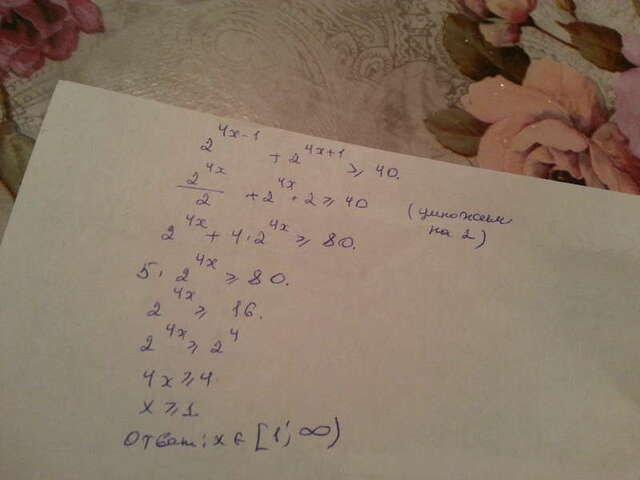 2^{4x-1} + 2^{4x+1} ⩾ 40.
2^{4x}/2 + 2^{4x} · 2 ⩾ 40 (умножаем
на 2)
2^{4x} + 4 · 2^{4x} ⩾ 80.
5 · 2^{4x} ⩾ 80.
2^{4x} ⩾ 16.
2^{4x} ⩾ 2^4
4x ⩾ 4
x ⩾ 1
Ответ: x ∈ [1; ∞)